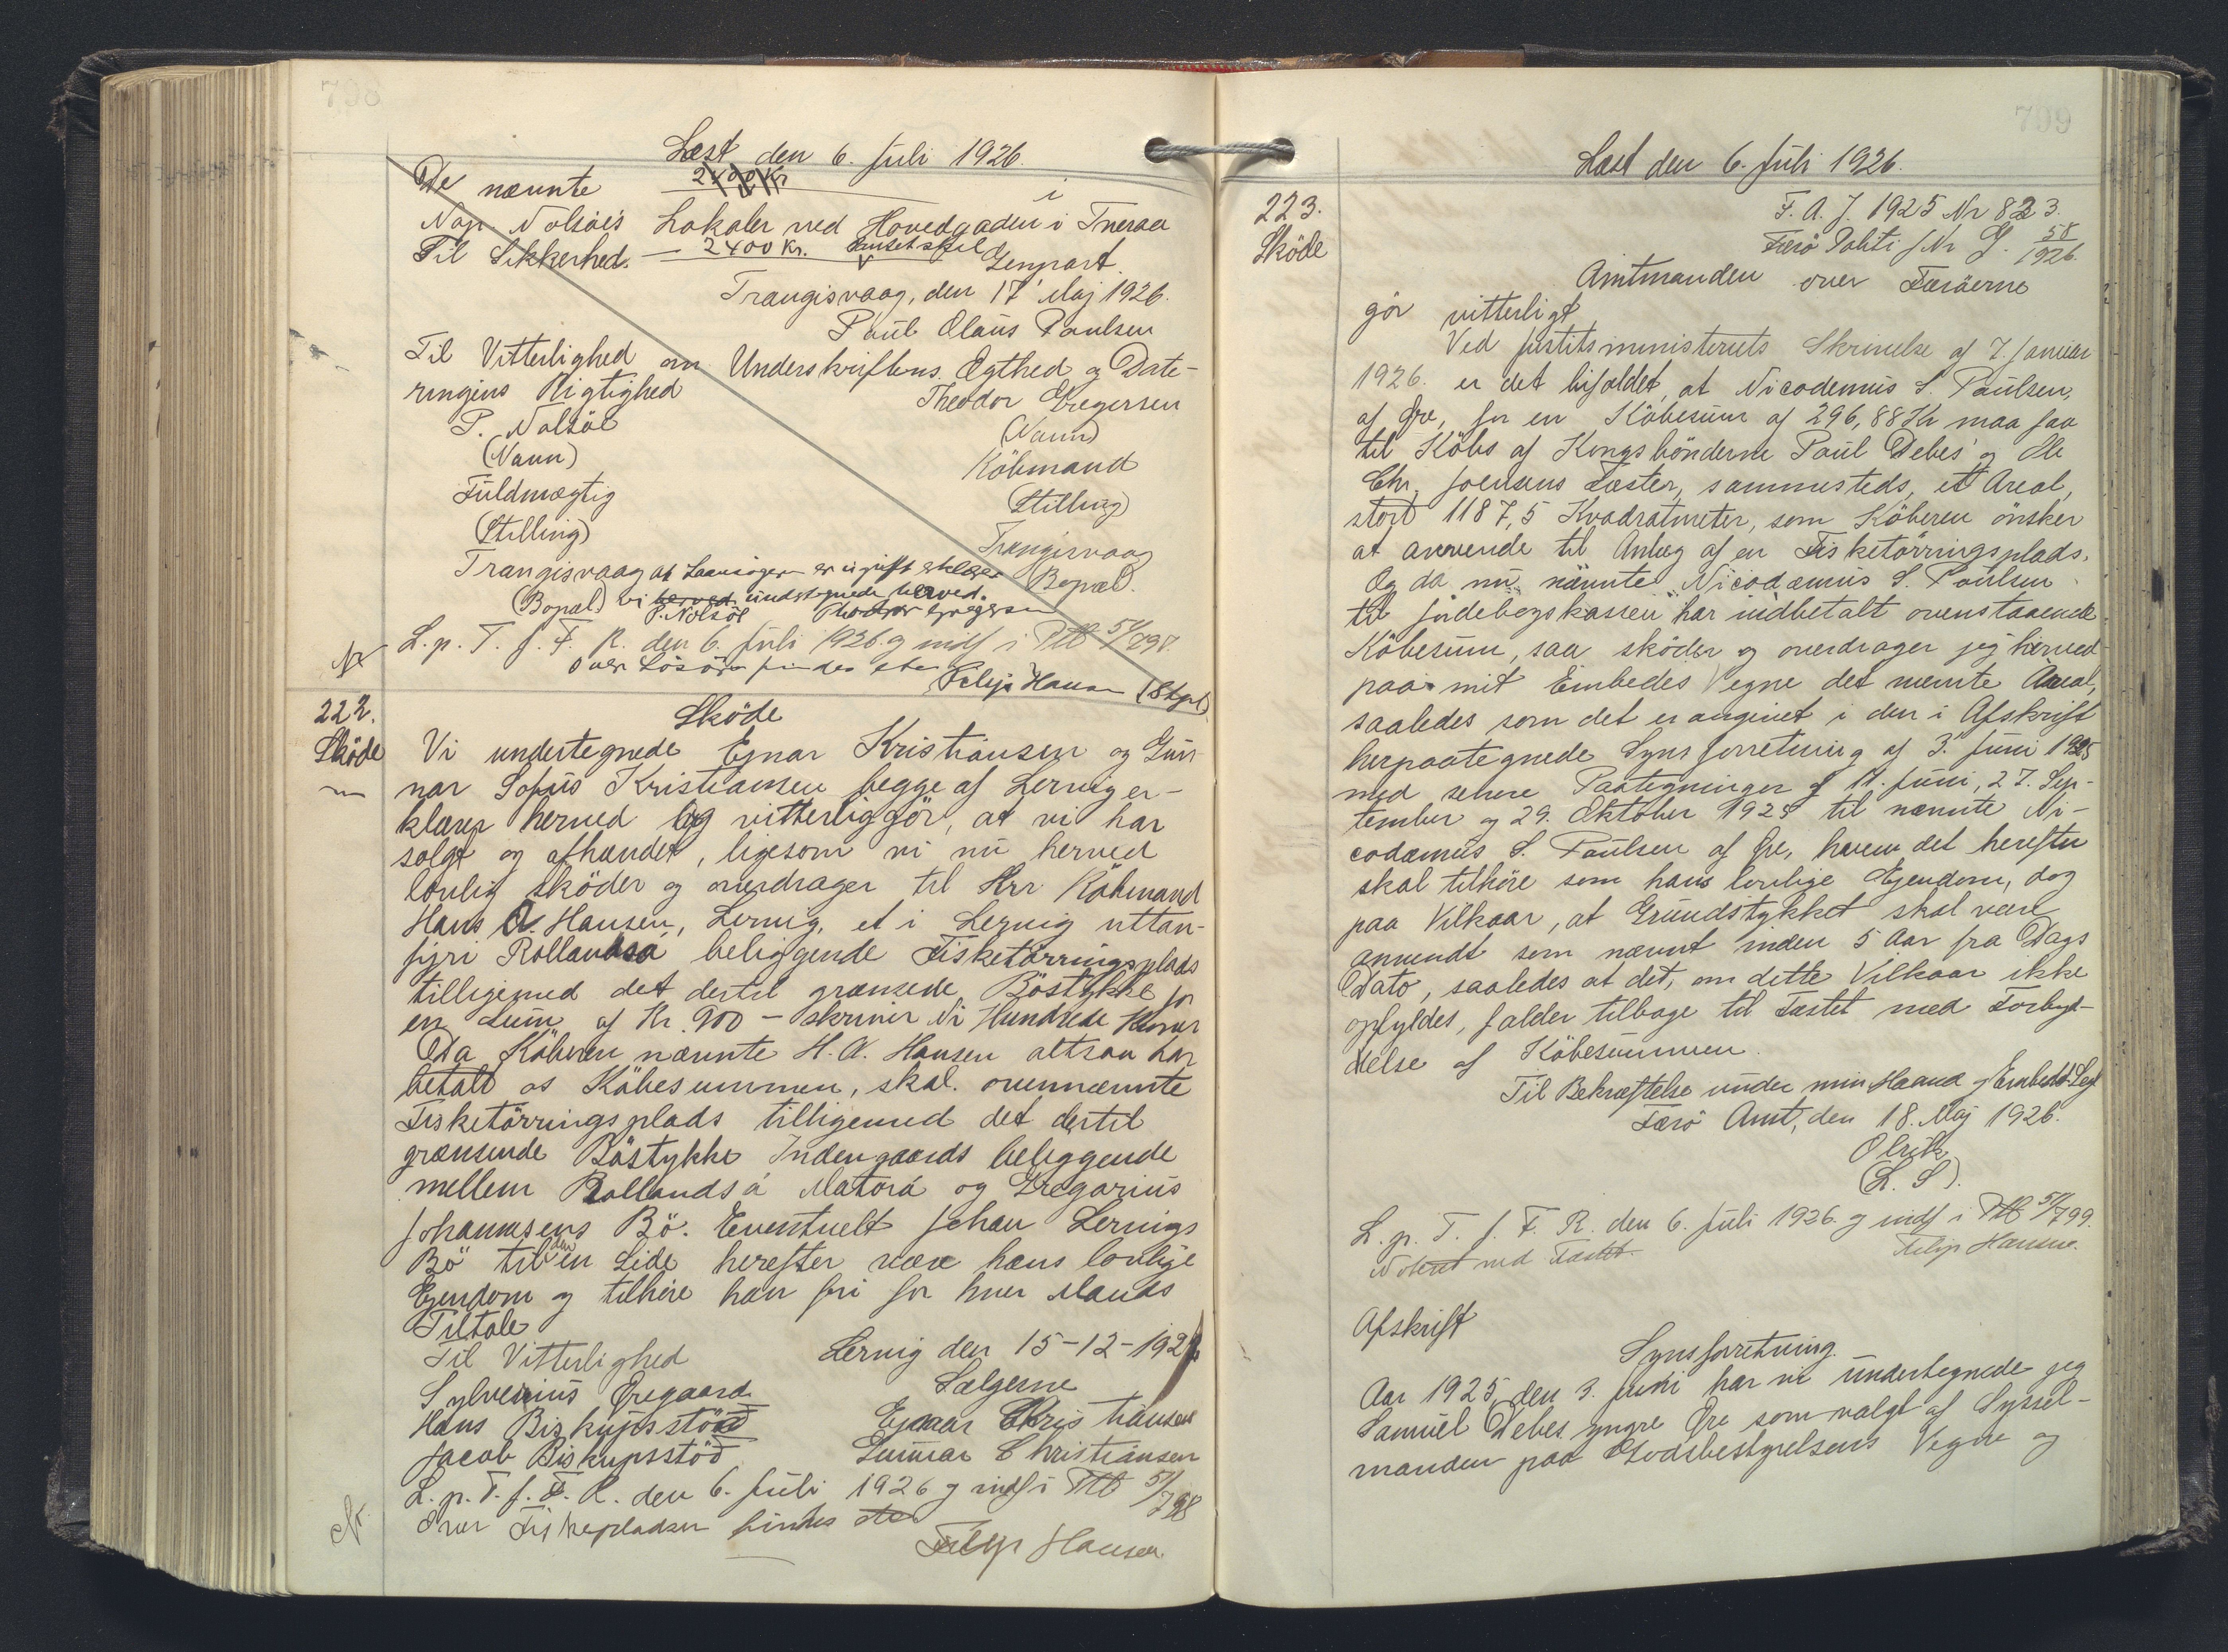 798
Læst den 6. Juli 1926.
De nævnte 2400 Kr i
Nap Nolsöes Lokaler ved Hovedgaden i Tveraa
Til Sikkerhed. — 2400 Kr. Genpart.
Trangisvaag, den 17' Maj 1926.
Paul Olaus Poulsen
Til Vitterlighed om Underskriftens Ægthed og Date-
ringens Rigtighed
Theodor Gregersen
P. Nolsöe
(Navn)
(Navn)
Köbmand
Fuldmægtig
(Stilling)
(Stilling)
Trangisvaag
Trangisvaag at Laansögeren er ugift erklærer
Bopæl.
(Bopæl) vi herved undertegnede herved.
P. Nolsöe Theodor Gregersen
L. p. T. f. F. R. den 6. Juli 1926 og indf i Ptb 5/798.
Over Lösöre findes
Filip Hansen (Stpl)
222.
Sköde
Sköde
Vi undertegnede Ejnar Kristiansen og Gun-
nar Sofus Kristiansen begge af Lervig er-
klærer herved og vitterliggör, at vi har
solgt og afhændet, ligesom vi nu herved
lovlig sköder og overdrager til Hrr Köbmand
Hans A. Hansen, Lervig, et i Lervig uttan-
fyri Rollandsá beliggende Fisketörringsplads
tilligemed det dertil grænsende Böstykke for
en Sum af Kr. 900 — skriver Ni Hundrede Kroner
Da Köberen nævnte H. A. Hansen altsaa har
betalt os Köbesummen, skal ovennævnte
Fisketörringsplads tilligemed det dertil
grænsende Böstykke Indengaards beliggende
mellem Rollandsá Matorá og Gregarius
Johannesens Bö. Eventuelt Johan Lervigs
Bö til den en Side herefter være hans lovlige
Ejendom og tilhöre ham fri for hver Mands
Tiltale
Til Vitterlighed
Lervig den 15-12-192
Sylverius Öregaard
Sælgerne
Hans Biskupsstöð
Ejnar Christiansen
Jacob Biskupsstöð
Gunnar Christiansen
L. p. T. f. F. R. den 6. Juli 1926 og indf i Ptb 5/798
Over Fiskepladsen findes
Filip Hansen
799
Læst den 6. Juli 1926.
223.
Sköde
F. A. J. 1925 Nr 823.
Færö Politi J Nr G. 58/1926.
Amtmanden over Færöerne
gör vitterligt
Ved Justitsministeriets Skrivelse af 7. Januar
1926. er det bifaldet, at Nicodemus S. Poulsen,
af Öre, for en Köbesum af 296,88 Kr maa faa
til Köbs af Kongsbönderne Paul Debes' og Ole
Chr. Joensens Fæster, sammesteds, et Areal,
stort 1187,5 Kvadratmeter, som Köberen önsker
at anvende til Anlæg af en Fisketörringsplads.
Og da nu nævnte Nicodemus S. Poulsen
til Jordebogskassen har indbetalt ovenstaaende
Köbesum, saa sköder og overdrager jeg herved
paa mit Embedes Vegne det nævnte Areal,
saaledes som det er angivet i den i Afskrift
herpaategnede Synsforretning af 3. Juni 1925
med senere Paategninger af 11. Juni, 27. Sep-
tember og 29. Oktober 1925 til nævnte Ni-
codæmus S. Poulsen af Öre, hvem det herefter
skal tilhöre som hans lovlige Ejendom, dog
paa Vilkaar, at Grundstykket skal være
anvendt som nævnt inden 5 Aar fra Dags
Dato, saaledes at det, om dette Vilkaar ikke
opfyldes, falder tilbage til Fæstet med Forbry-
delse af Köbesummen.
Til Bekræftelse under min Haand og Embeds Segl
Færö Amt, den 18. Maj 1926.
Olrik
(L. S).
L. p. T. f. F. R. den 6. Juli 1926. og indf i Ptb 5/799.
Noteret ved Fæstet.
Filip Hansen.
Afskrift
Synsforretning.
Aar 1925, den 3. Juni har vi undertegnede jeg
Samuel Debes yngre Öre som valgt af Syssel-
manden paa Godsbestyrelsens Vegne og